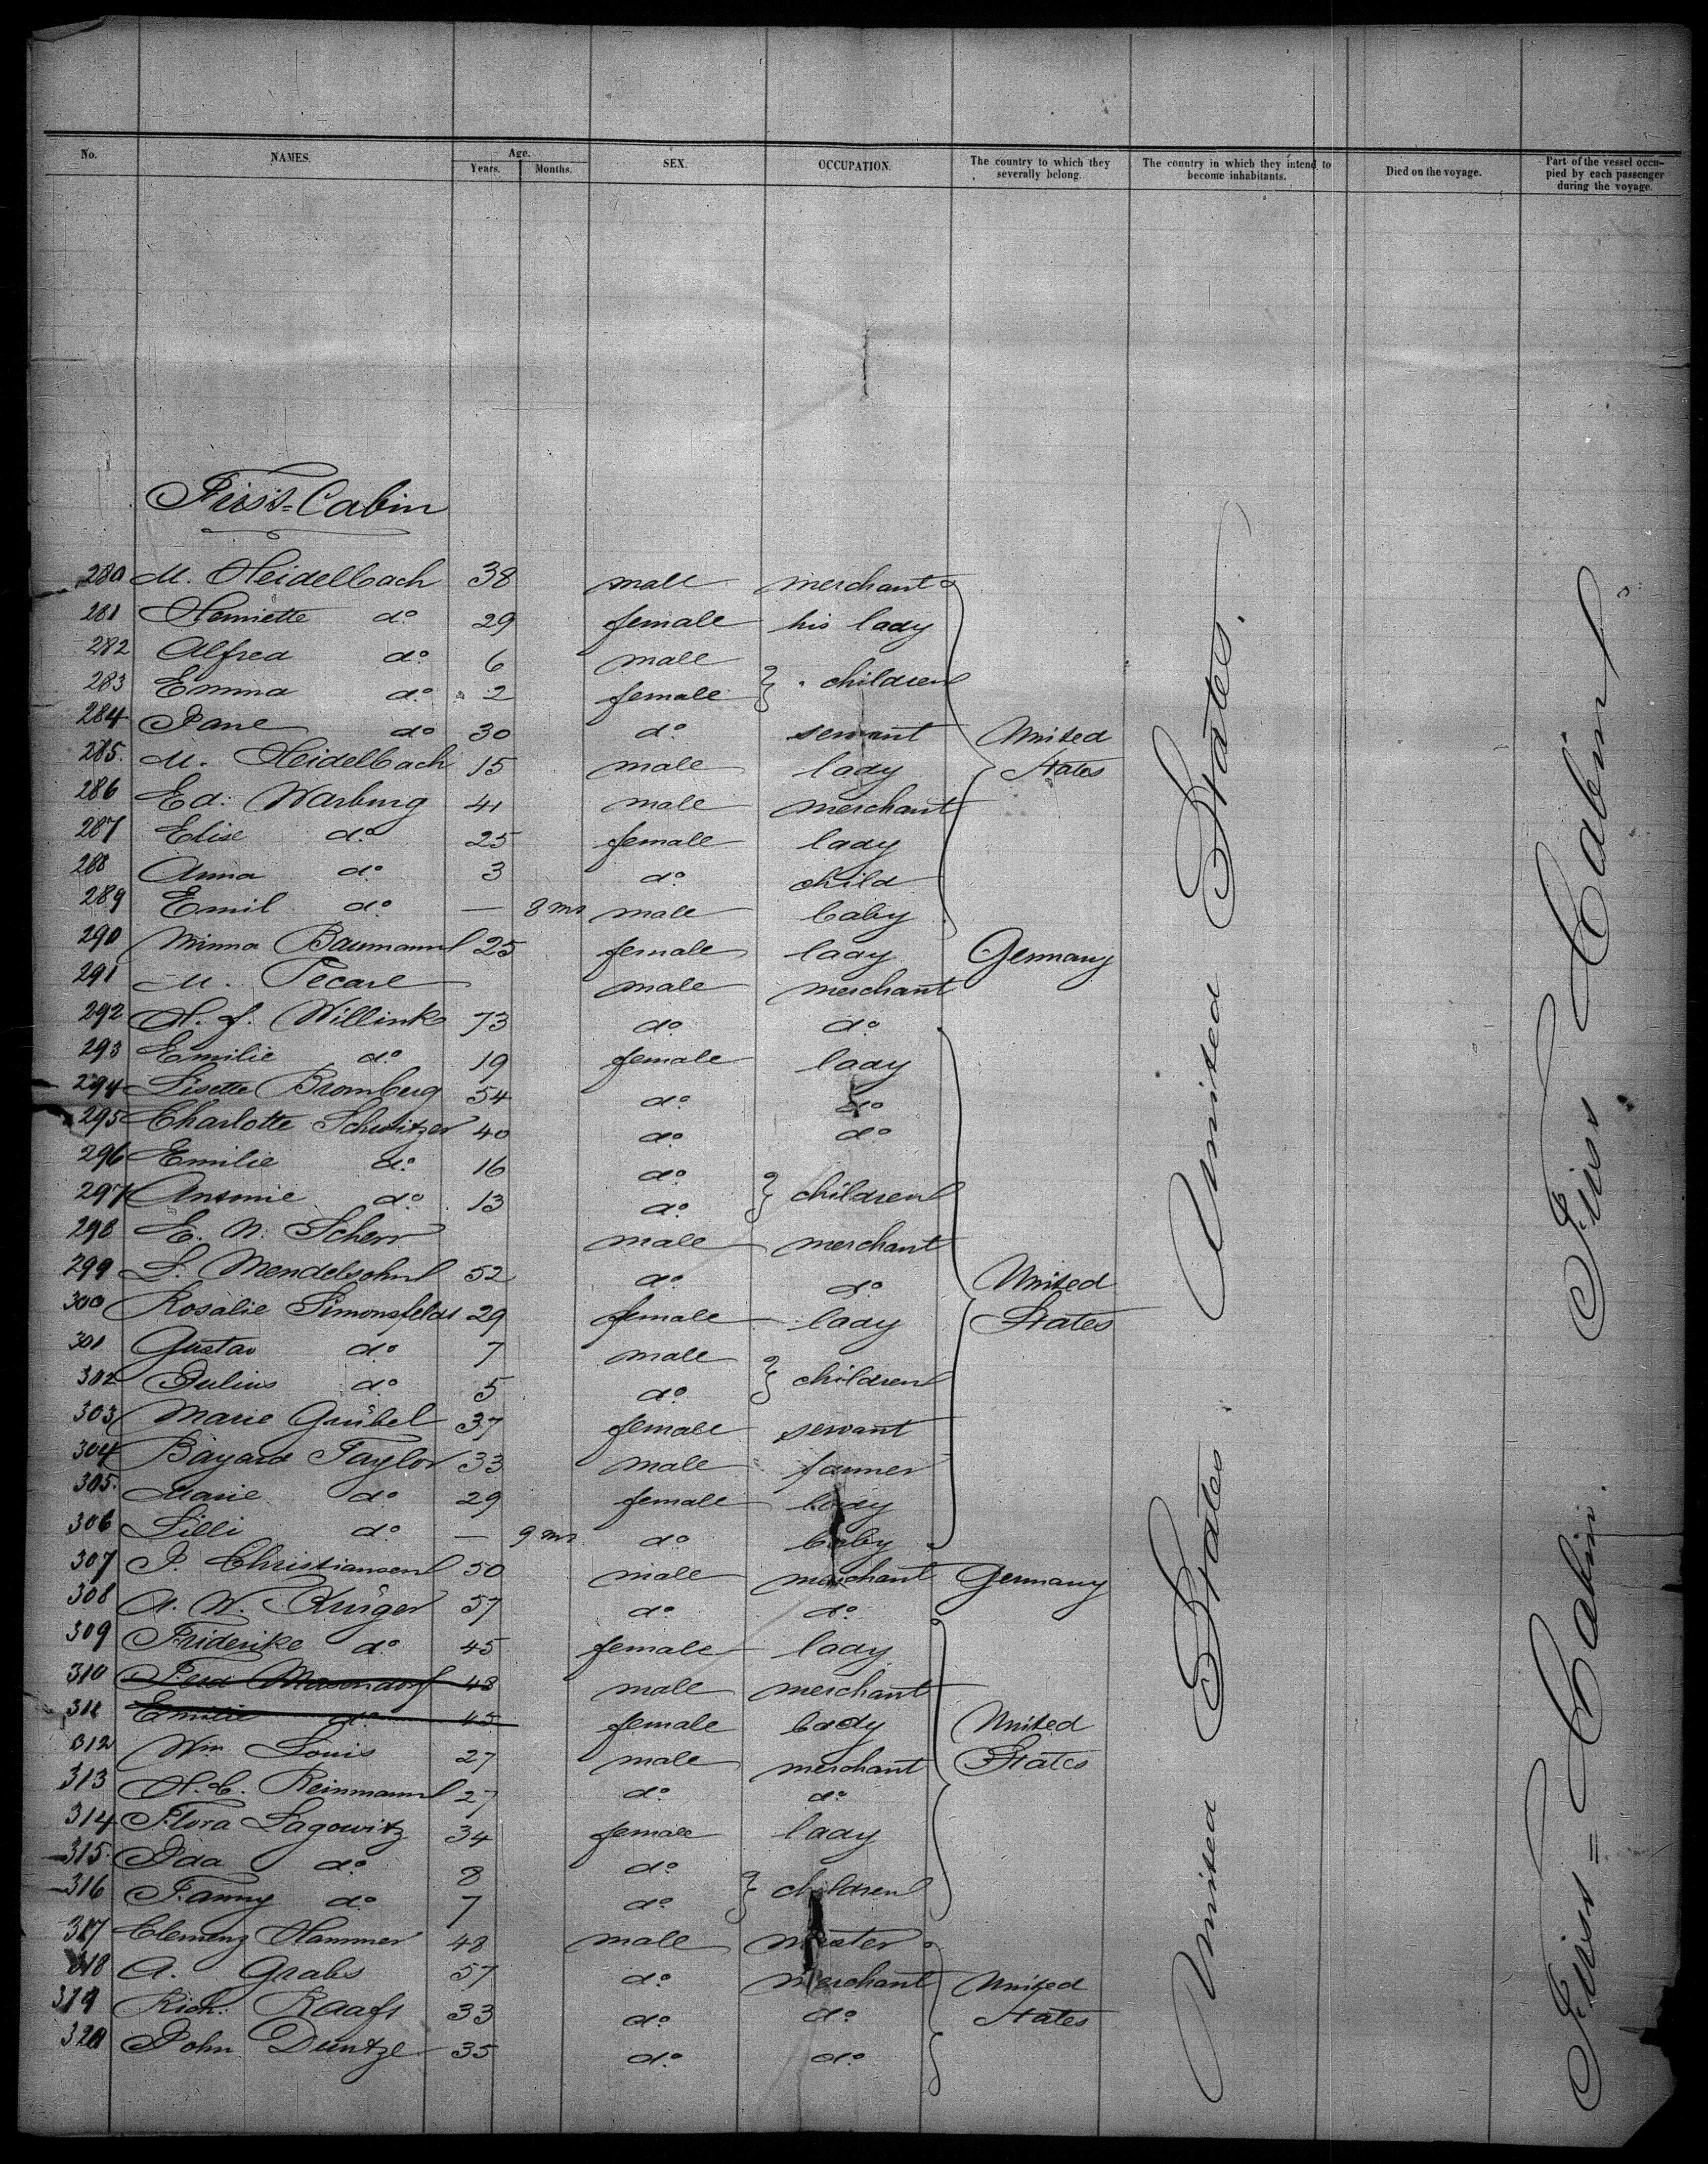 No. NAMES. Age. Years. Months. SEX. OCCUPATION. The country to which they severally belong. The country in which they intend to become inhabitants. Died on the voyage. Part of the vessel occupied by each passenger during the voyage.
First=Cabin
280 M. Heidelbach 38 male merchant
281 Henriette do 29 female his lady
282 Alfred do 6 male
283 Emma do 2 female } children
284 Jane do 30 do servant United
285. M. Heidelbach 15 male lady States
286 Ed: Warburg 41 male merchant
287 Elise do 25 female lady
288 Anna do 3 do child
289 Emil do — 8 ms male baby
290 Minna Baumann 25 female lady Germany
291 M. Pecare male merchant
292 H. J. Willink 73 do do
293 Emilie do 19 female lady
294 Lisette Bromberg 54 do do
295 Charlotte Schnitzer 40 do do
296 Emilie do 16 do
297 Antonie do 13 do } children
298 E. N. Scherr male merchant
299 S. Mendelsohn 52 do do United
300 Rosalie Simonsfeld 29 female lady States
301 Gustav do 7 male
302 Julius do 5 do } children
303 Marie Grübel 37 female servant
304 Bayard Taylor 33 male farmer
305. Marie do 29 female lady
306 Lilli do — 9 ms do baby
307 J. Christiansen 50 male merchant Germany
308 A. W. Krüger 57 do do
309 Friderike do 45 female lady
310 48 male merchant
311 Emilie do 45 female lady United
312 Wm Louis 27 male merchant States
313 H. C. Reinmann 27 do do
314 Flora Lagowitz 34 female lady
315. Ida do 8 do
316 Fanny do 7 do } children
317 Clemenz Hammer 48 male
318 A. Grabs 57 do merchant United
319 Rich: Raafs 33 do do States
320 John Duntze 35 do do
United States United States.
First=Cabin. First Cabin